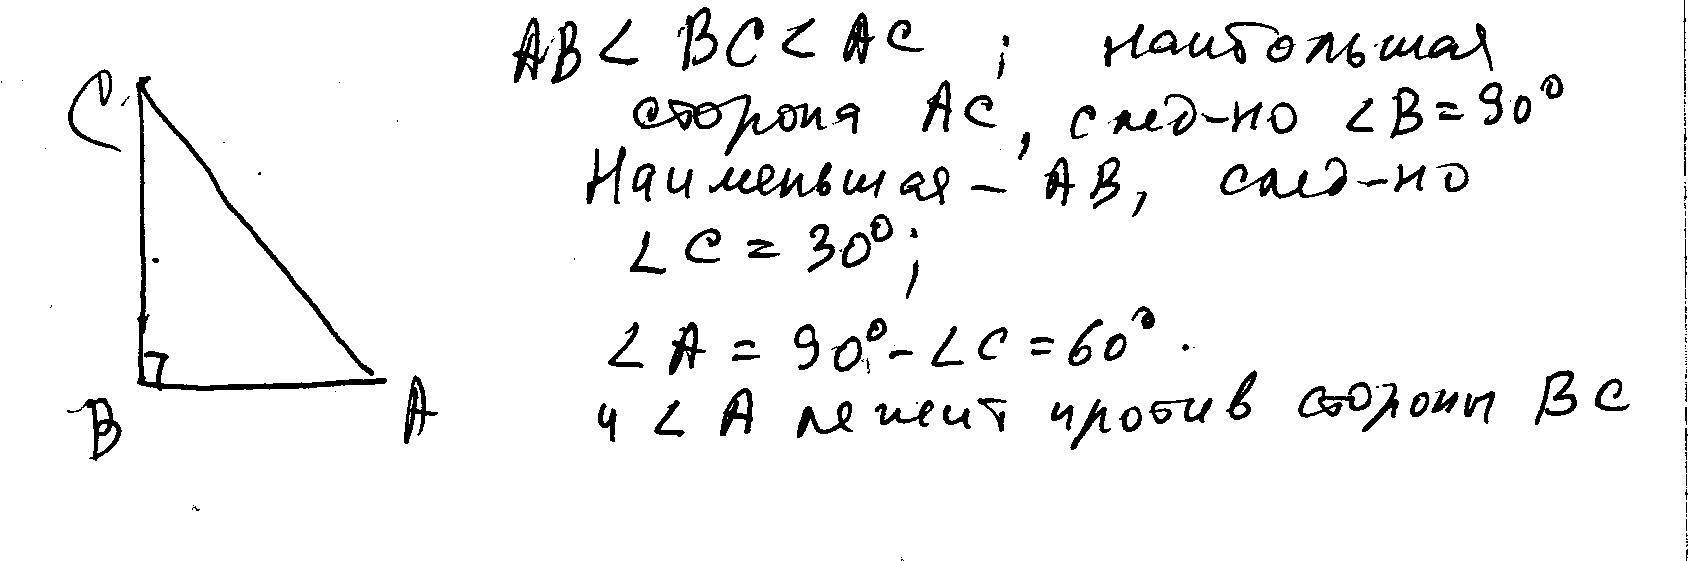 AB < BC < AC ; наибольшая
сторона AC, след-но ∠B = 90°
Наименьшая – AB, след-но
∠C = 30°;
∠A = 90° - ∠C = 60°.
и ∠A лежит против стороны BC
C
B
A